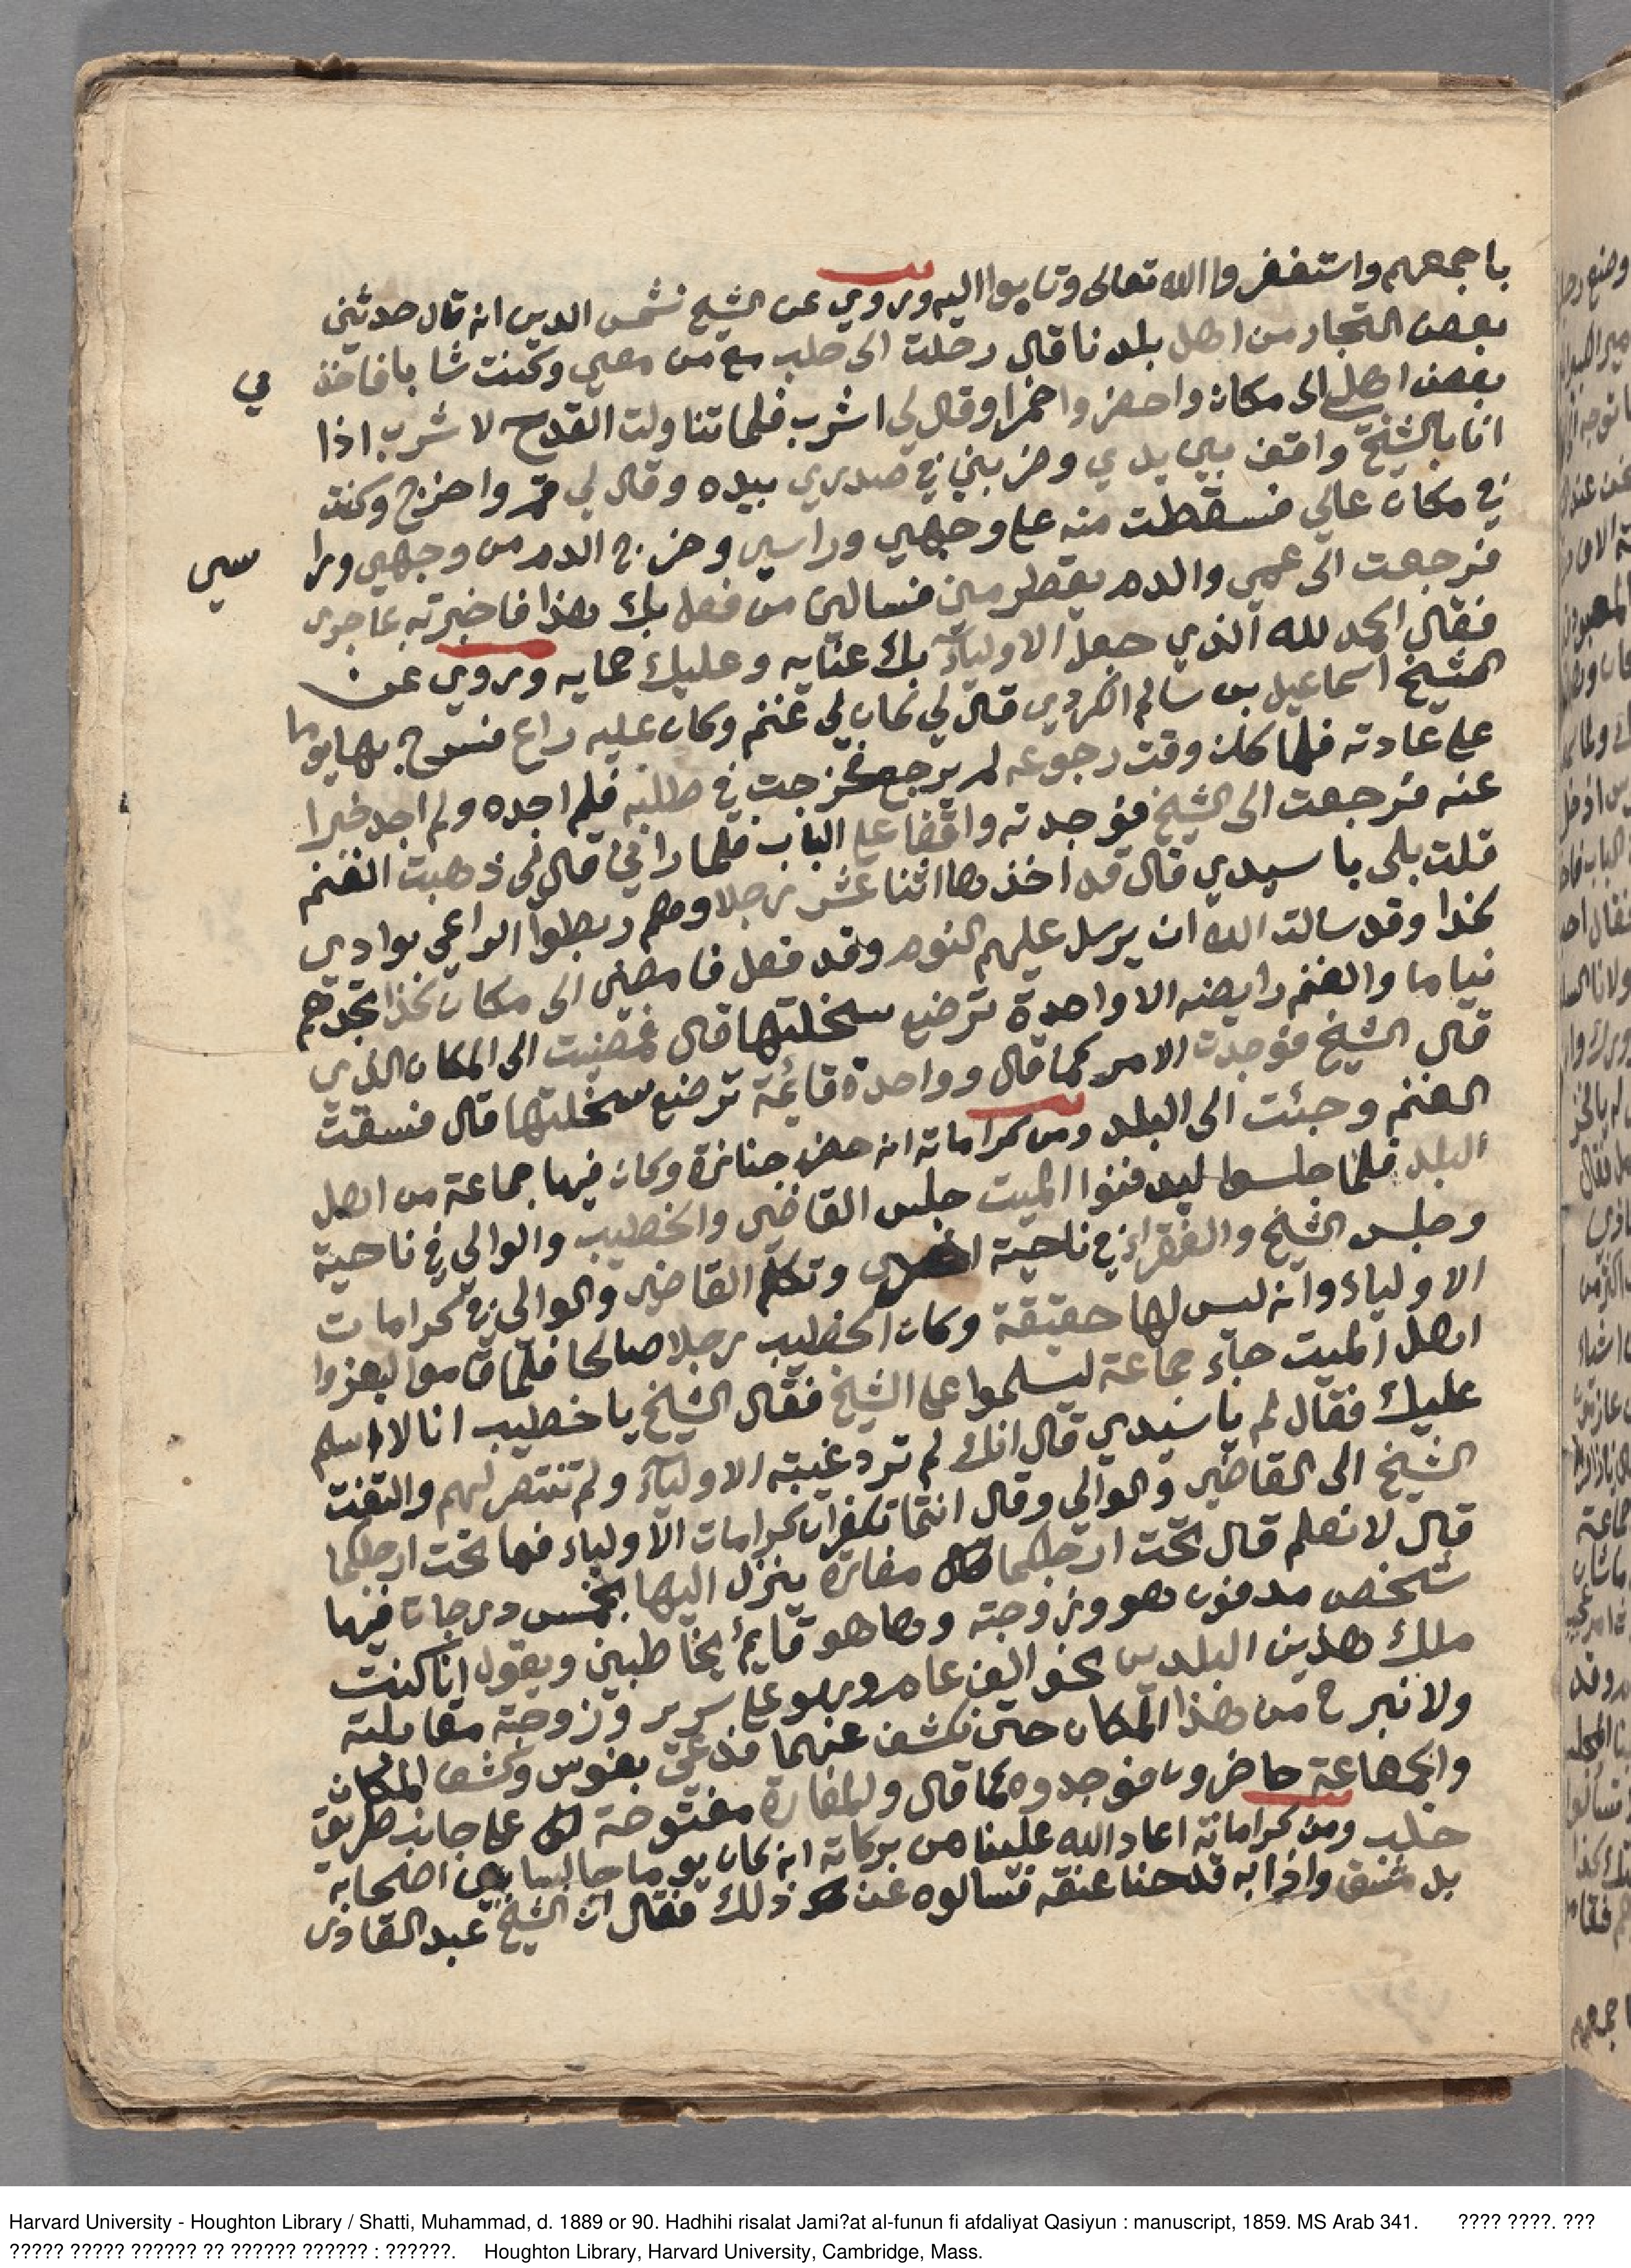 باجمعهم واستغفروا الله تعالى وتابوا اليه وروي عن الشيخ شمس الدين انه قال حدثني
بعض التجار من اهل بلدنا قال رحلت الى حلب مع من معي وكنت شابا فاخذ
ني
بعض اهل الى مكان واحضروا خمرا وقال لي اشرب فلما تناولت القدح لاشرب اذا
انا بالشيخ واقف بين يدي وضربني في صدري بيده وقال لي قم واخرج وكنت
في مكان عالي فسقطت منه على وجهي وراسي وخرج الدم من وجهي ورا
سي
فرجعت الى عمي والدم يقطر مني فسالني من فعل بك هذا فاخبرته بما جرى
فقال الحمد لله الذي جعل الاولياء بك عنايه وعليك حمايه وروي عن
الشيخ اسماعيل بن سالم الكردي قال لي كان لي غنم وكان عليه راع فسرح بها يوما
على عادته فلما كان وقت رجوعه لم يرجع فخرجت في طلبه فلم اجده ولم اجد خبرا
عنه فرجعت الى الشيخ فوجدته واقفا على الباب فلما راني قال لي ذهبت الغنم
قلت بلى يا سيدي قال قد اخذها اثنا عشر رجلا وهم ربطوا الراعي بوادي
كذا وقد سالت الله ان يرسل عليهم النوم وقد فعل فامضي الى مكان كذا تجدهم
نياما والغنم رابضه الا واحدة ترضع سخلتها قال فمضيت الى المكان الذي
قال الشيخ فوجدت الامر كما قال وواحدة قائمة ترضع سخلتها قال فسقت
الغنم وجئت الى البلد ومن كراماته انه حضر جنازة وكان فيها جماعة من اهل
البلد فلما جلسوا ليدفنوا الميت جلس القاضي والخطيب والوالي في ناحية
وجلس الشيخ والفقراء في ناحية اخرى وتكلم القاضي والوالي في كرامات
الاولياء وانه ليس لها حقيقة وكان الخطيب رجلا صالحا فلما قاموا ليعزوا
اهل الميت جاء جماعة ليسلموا على الشيخ فقال الشيخ يا خطيب انا لا اسلم
عليك فقال لم يا سيدي قال انك لم ترد غيبة الاولياء ولم تنتصر لهم والتفت
الشيخ الى القاضي والوالي وقال انتما تكفران كرامات الاولياء فما تحت ارجلكما
قال لا نعلم قال تحت ارجلكما مغارة ينزل اليها بخمس درجات فيها
شخص مدفون هو وزوجته وها هو قايم يخاطبني ويقول انا كنت
ملك هذين البلدين نحو الف عام وهو على سرير وزوجته مقابلته
ولا نبرح من هذا المكان حتى نكشف عنهما فدعى بفوس وكشف المكان
والجماعة حاضرون فوجدوه كما قال والمغارة مفتوحة على جانب طريق
حلب ومن كراماته اعاد الله علينا من بركاته انه كان يوما جالسا بين اصحابه
بل مشنق واذا به قد حنا عنقه فسالوه عن ذلك فقال ان الشيخ عبد القادر